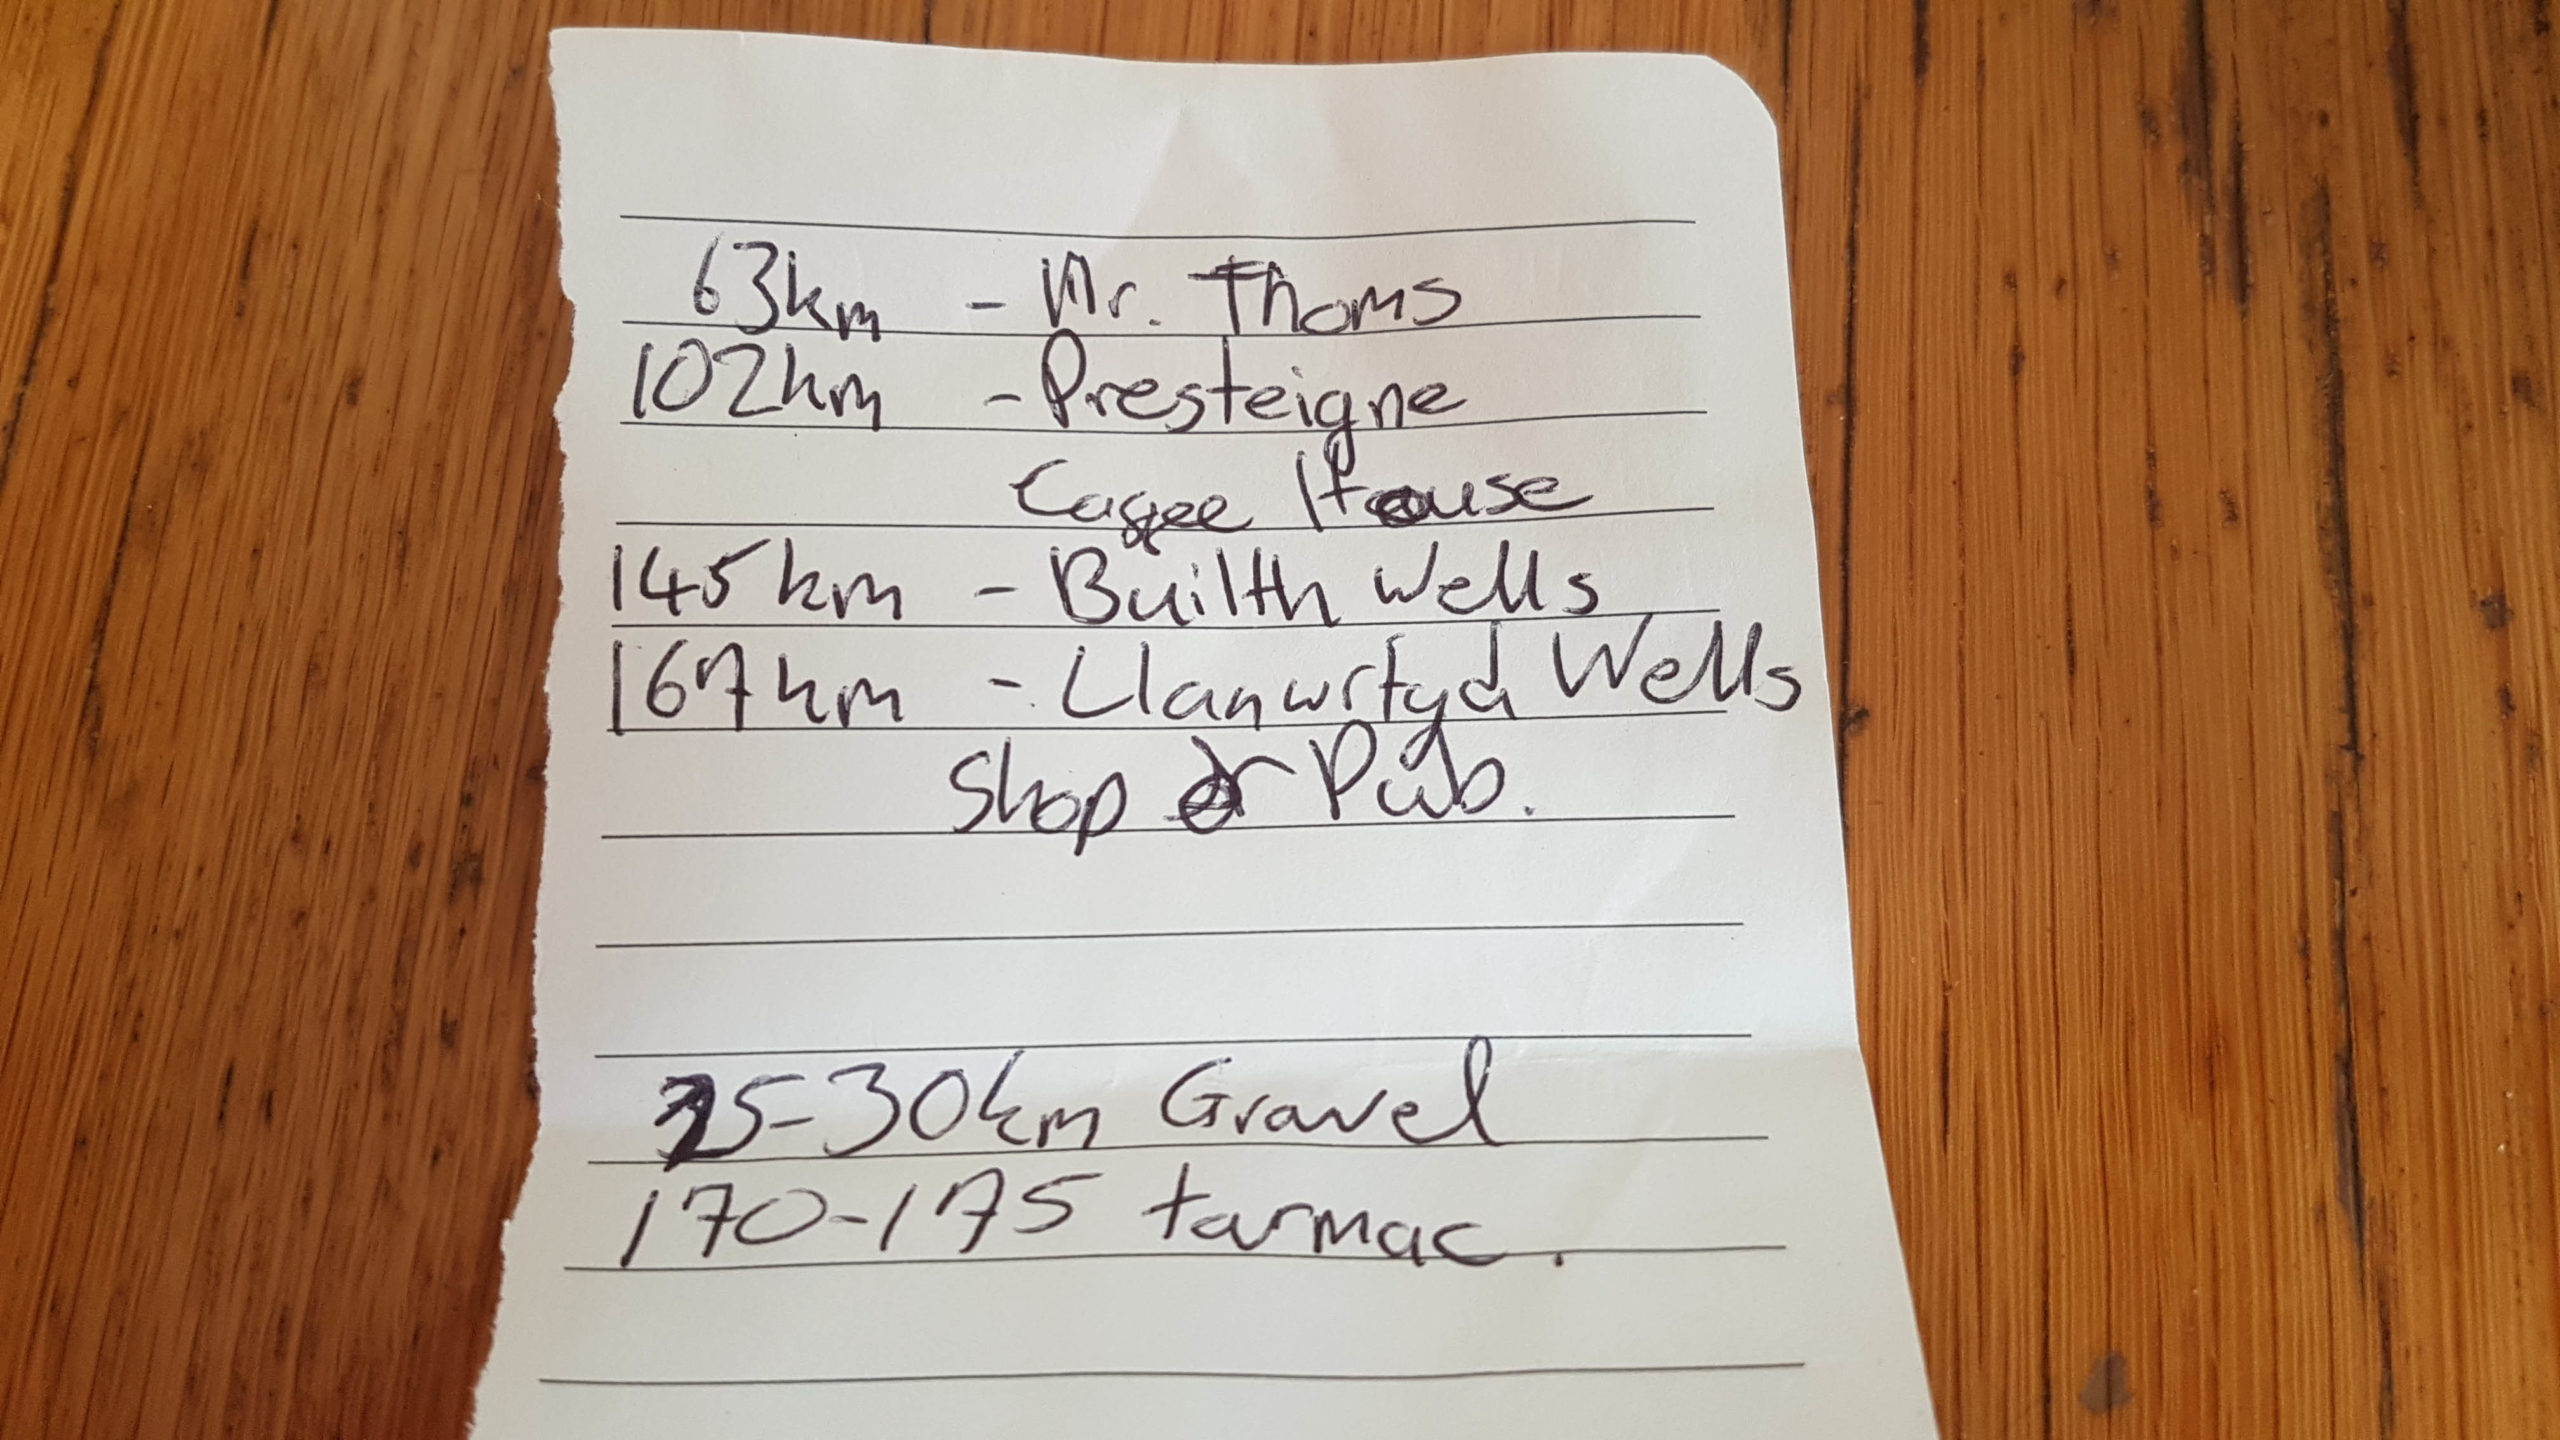 63km - Mr. Thoms
102km - Presteigne
Coffee House
145km - Builth Wells
167km - Llanwrtyd Wells
Shop or Pub.
25-30km Gravel
170-175 tarmac.